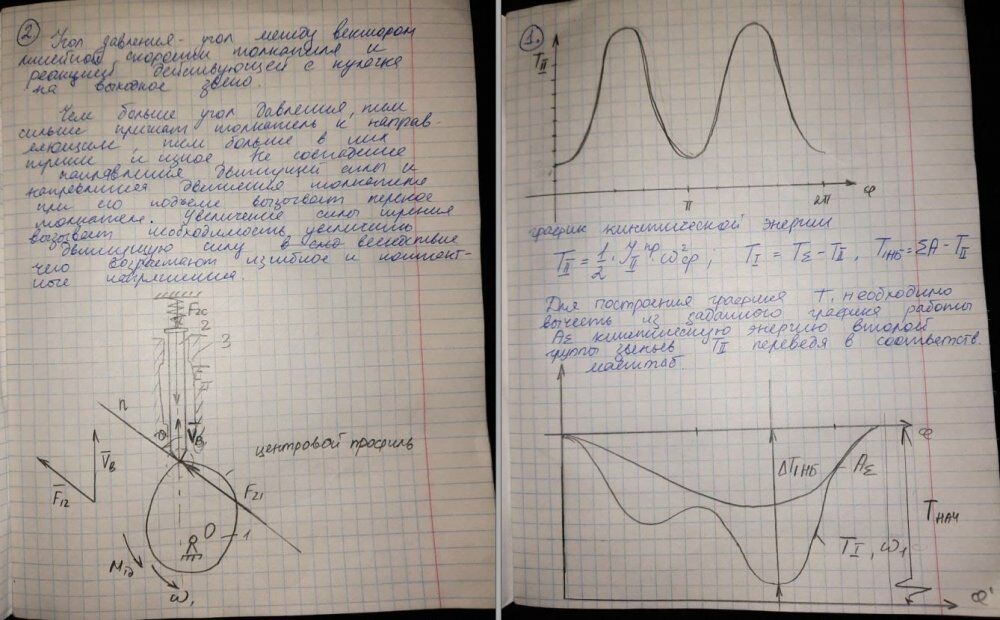 2
Угол давления - угол между вектором
линейной скорости толкателя и
реакцией действующей с кулачка
на выходное звено.
Чем больше угол давления, тем
сильнее прижат толкатель к направ-
ляющим, тем больше в них
трение и износ. Не совпадение
направления движущей силы и
направления движения толкателя
при его подъеме вызывает перекос
толкателя. Увеличение силы трения
вызывает необходимость увеличить
движущую силу в вследствие
чего возрастают изгибное и контакт-
ные напряжения.
F2c
2
3
n
B
центровой профиль
V̅B
F̅12
F21
O
1
Mд
ω1
1.
TII
π
2π
φ
график кинетической энергии
TII = 1/2 · JIIпр · ω²ср ; TI = TΣ - TII , TIнб = ΣA - TII
Для построения графика T, необходимо
вычесть из заданного графика работы
AΣ кинетическую энергию второй
группы звеньев TII переведя в соответств.
масштаб.
φ
ΔTIнб
AΣ
Tнач
TI, ω1
φ'